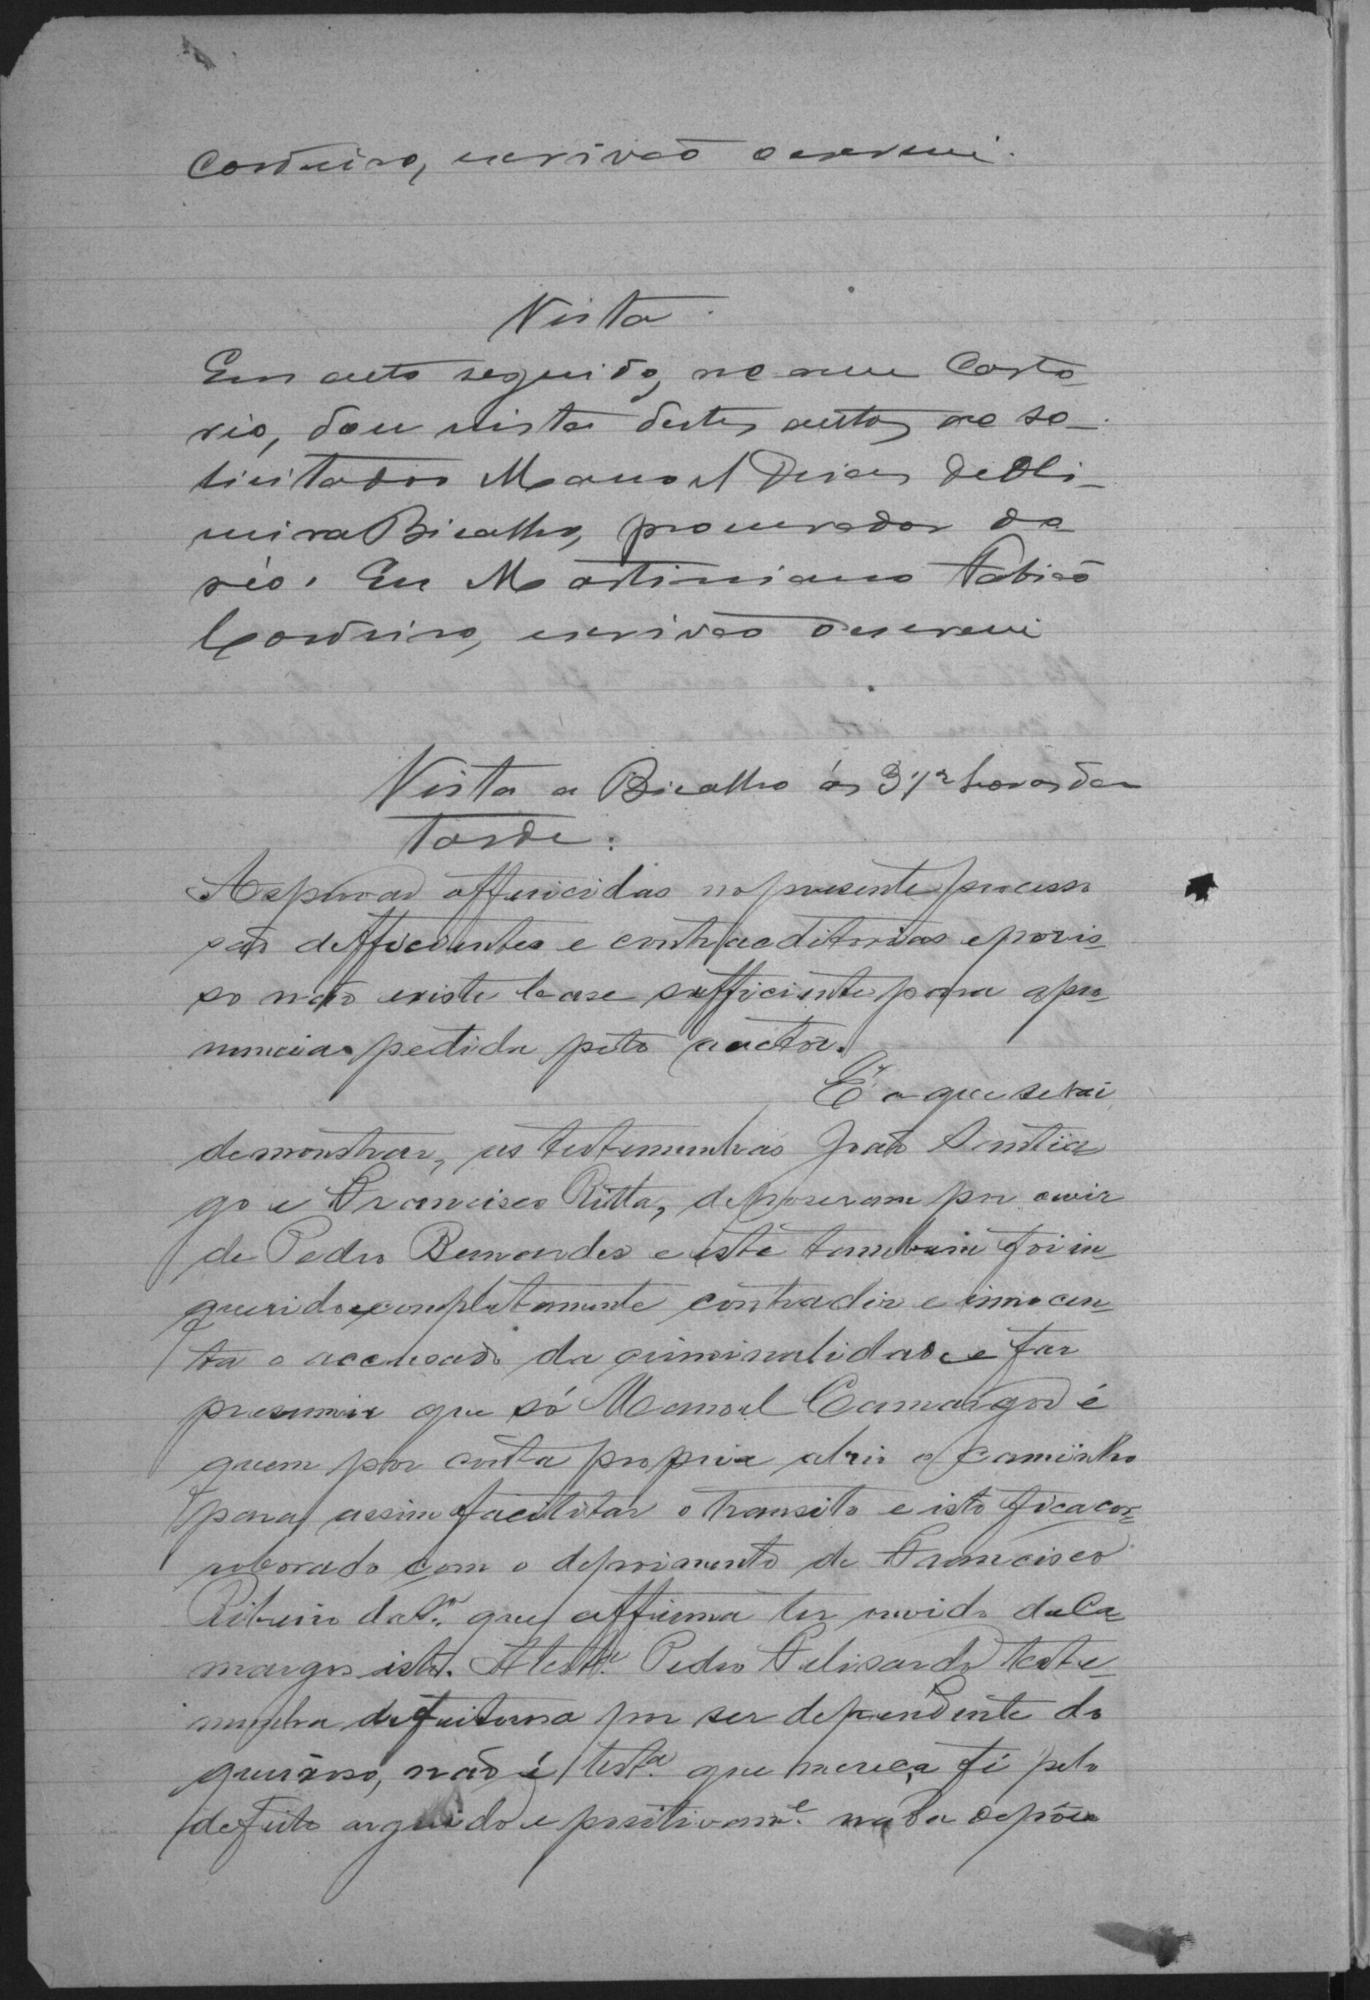 Cordeiro, escrivão o escrevi.
Vista
Em acto seguido, no meu Carto-
rio, dou vista destes autos ao So-
licitador Manoel Dias de Oli-
veira Bicalho, procurador do
réo. Eu Martiniano Fabião
Cordeiro, escrivão o escrevi
Vista a Bicalho ás 3 1/2 horas da
tarde.
As provas offericidas no presente processo
são defficientes e contraditorias e poris-
so não existe base sufficiente para a pro-
nuncia pedida pelo auctor.
É o que se vai
demonstrar, as testemunhas João Santia-
go e Francisco Ritta, deposeram por ouvir
de Pedro Bernardes e este tambem foi in-
querido e completamente contradiz e innocen-
ta o accusado da criminalidade e faz
presumir que só Manoel Camargos é
quem por conta propria abrio o caminho
para assim facilitar o transito e isto fica cor-
roborado com o depoimento de Francisco
Ribeiro da Sª. que affirma ter ouvido de Ca-
margos isto. A testª. Pedro Felisardo teste-
munha defeituosa por ser dependente do
queixoso, não é testª. que mereça fé pelo
defeito arguido e positivamᵉ. nada depõe